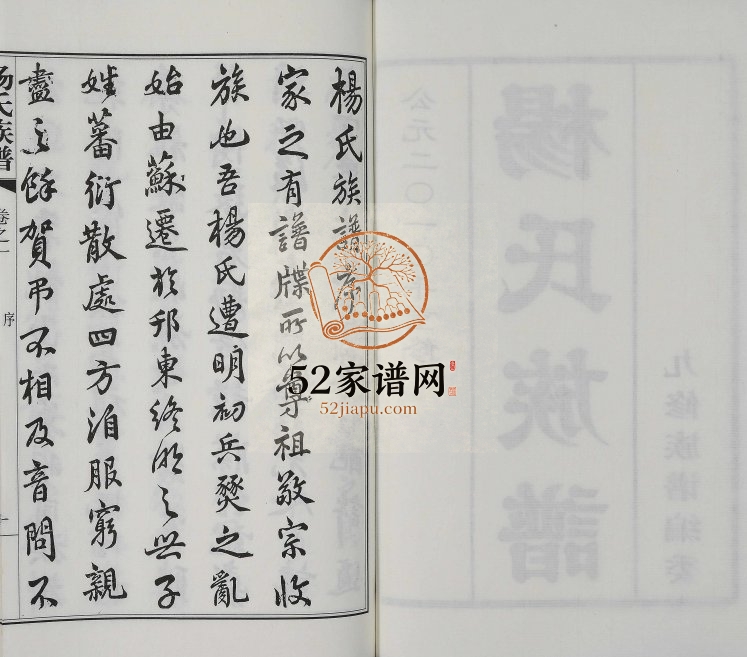 楊氏族譜序
家之有譜牒所以尊祖敬宗收
族也吾楊氏遭明初兵燹之亂
始由蘇遷於邗東終明之世子
姓蕃衍散處四方洎服窮親
盡之餘賀弔不相及音問不
楊氏族譜
卷之一
序
一
52家谱网
52jiapu.com
楊氏族譜
公元二〇一
九修族譜編委